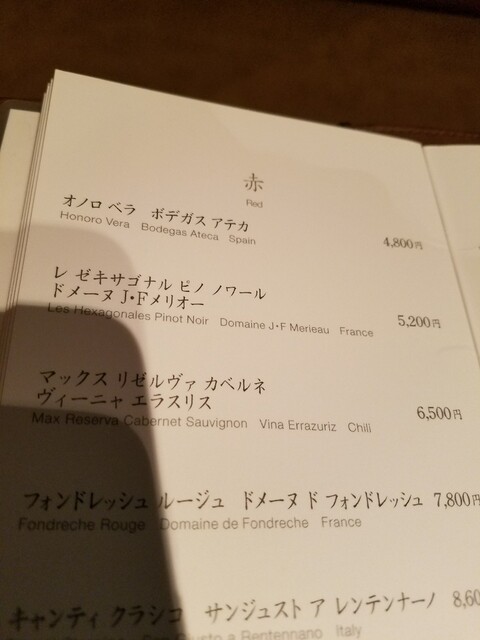 赤
Red
オノロ ベラ ボデガス アテカ
Honoro Vera Bodegas Ateca Spain
4,800円
レ ゼキサゴナル ピノ ノワール
ドメーヌ J・Fメリオー
Les Hexagonales Pinot Noir Domaine J・F Merieau France
5,200円
マックス リゼルヴァ カベルネ
ヴィーニャ エラスリス
Max Reserva Cabernet Sauvignon Vina Errazuriz Chili
6,500円
フォンドレッシュ ルージュ ドメーヌ ド フォンドレッシュ 7,800円
Fondreche Rouge Domaine de Fondreche France
キャンティ クラシコ サンジュスト ア レンテンナーノ
Giusto a Rentennano Italy